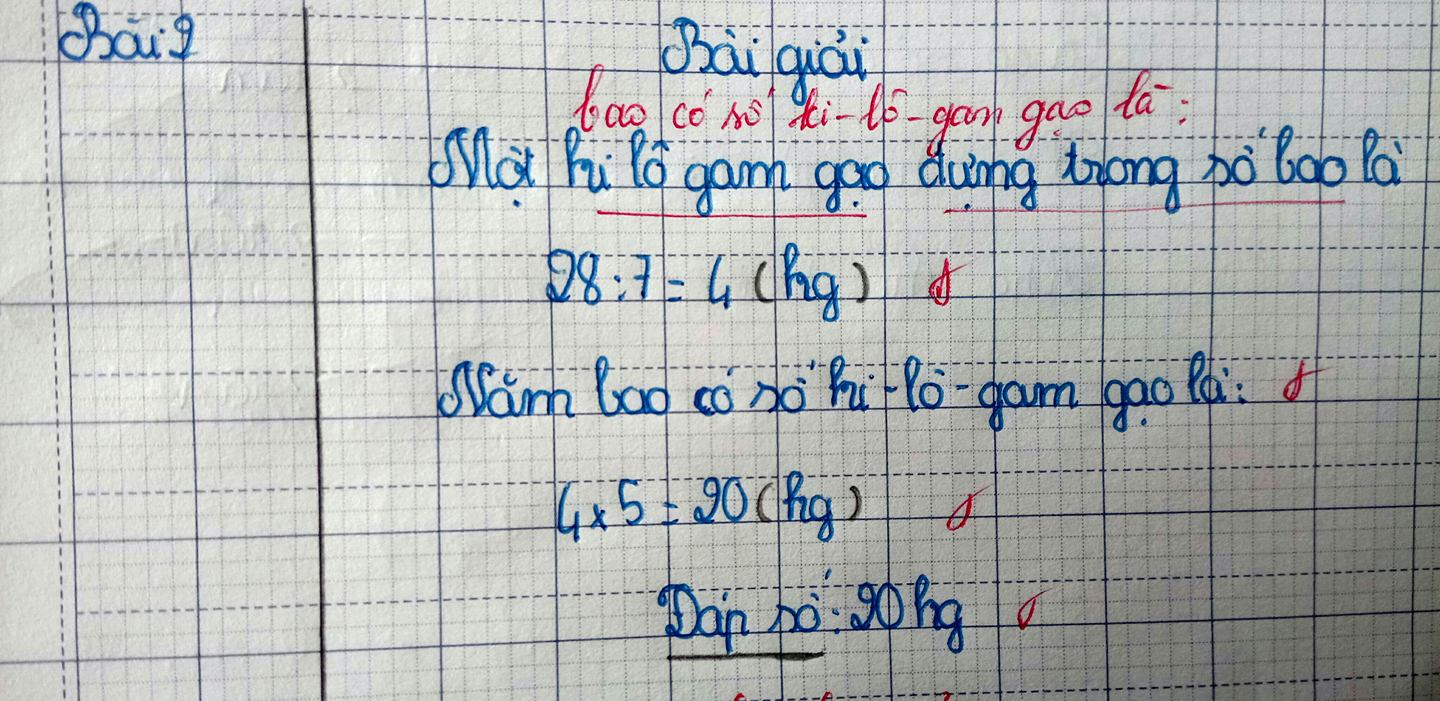 Bài 2
Bài giải
bao có số ki-lô-gam gạo là:
Một ki lô gam gạo đựng trong số bao là
28 : 7 = 4 (kg) đ
Năm bao có số ki-lô-gam gạo là: đ
4 x 5 = 20 (kg) đ
Đáp số: 20 kg đ